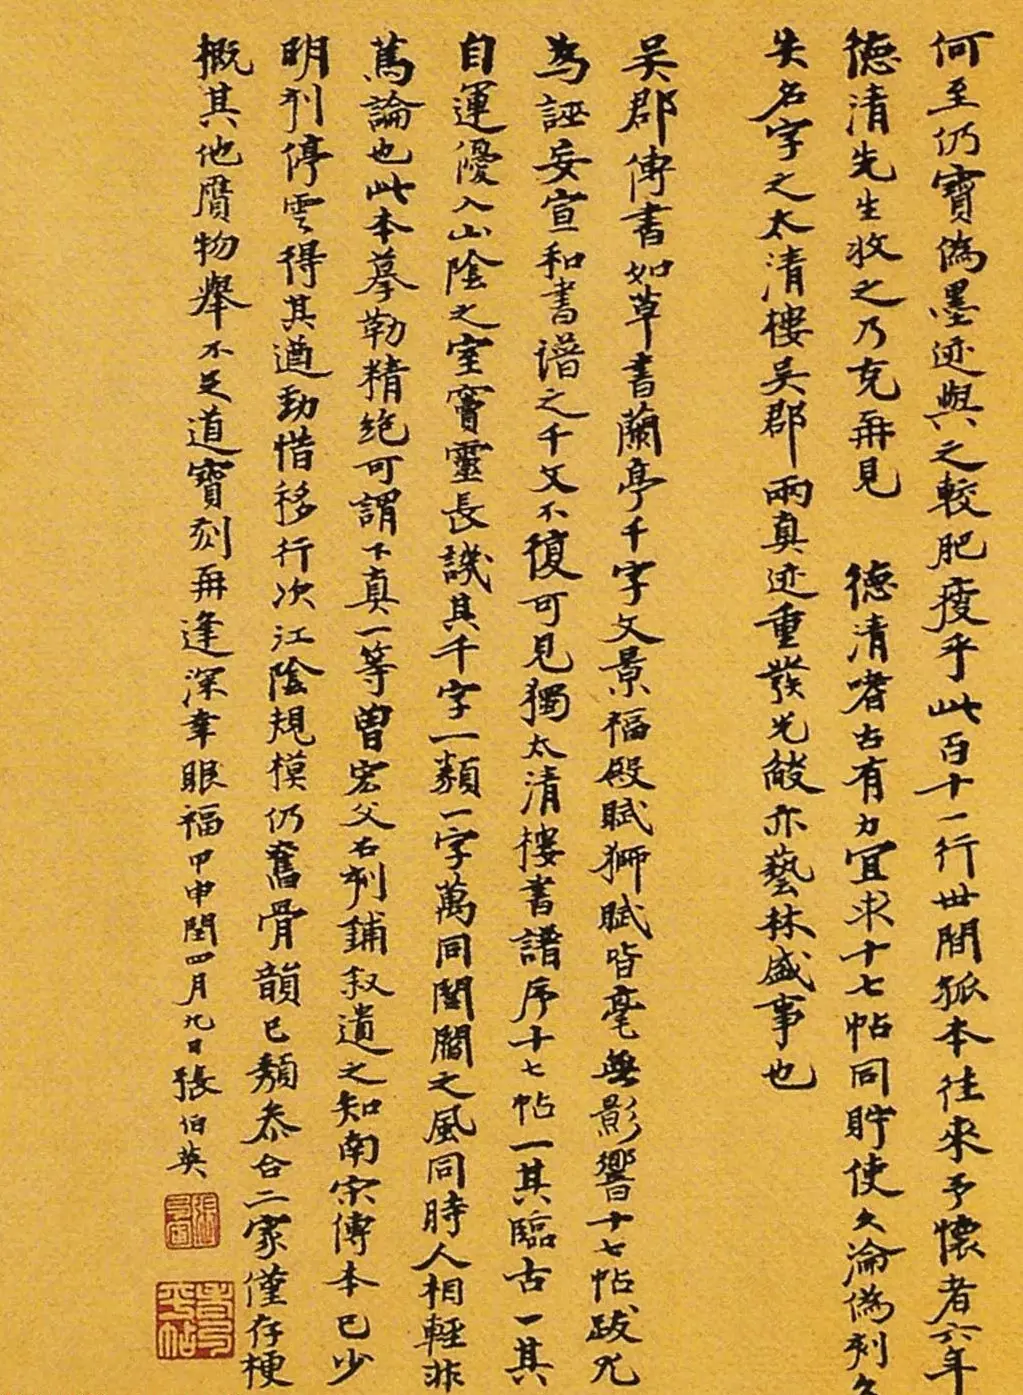 何至仍寶偽墨迹與之較肥瘦乎此百十一行世間狐本往來予懷者六年
德清先生收之乃克再見 德清耆古有力宜求十七帖同貯使久淪偽刻久
失名字之太清樓吳郡兩真迹重發光燄亦藝林盛事也
吳郡傳書如草書蘭亭千字文景福殿賦獅賦皆毫無影響十七帖跋尤
為誣妄宣和書譜之千文不復可見獨太清樓書譜序十七帖一其臨古一其
自運優入山陰之室竇靈長譏其千字一類一字萬同閭閻之風同時人相輕非
篤論也此本摹勒精絕可謂下真一等曾宏父石刻鋪叙遺之知南宋傳本已少
明刻停雲得其遒勁惜移行次江陰規模仍舊骨韻已頹叅合二家僅存梗
概其他贋物舉不足道寶刻再逢深幸眼福甲申閏四月九日張伯英